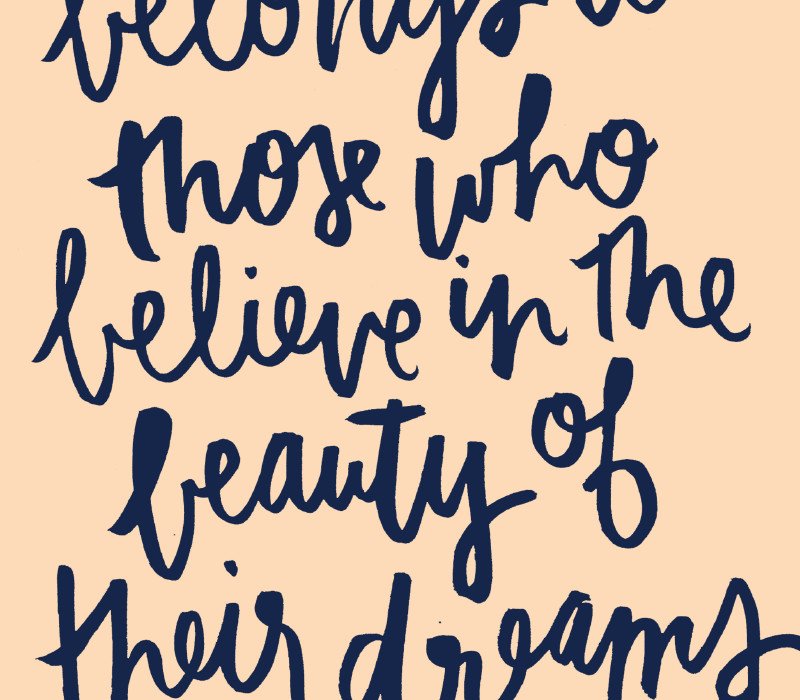 belongs to
those who
believe in the
beauty of
their dreams